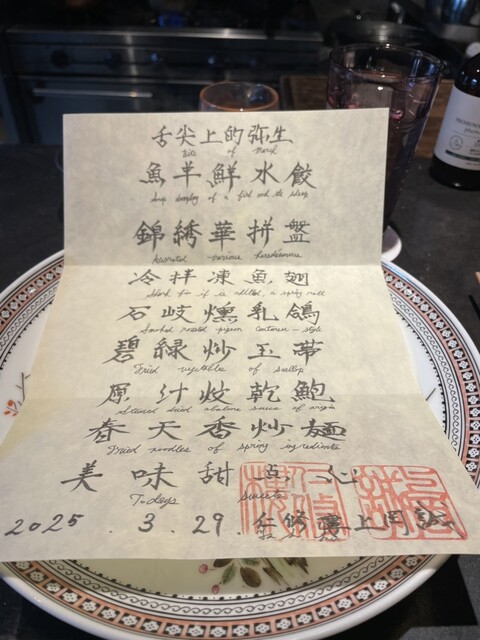 舌尖上的弥生
Bite of March
魚羊鮮水餃
錦綉華拼盤
Assorted various
冷拌凍魚翅
石岐燻乳鴿
Smoked roasted pigeon Cantonese-style
碧緑炒玉帯
Fried vegetables of scallop
原汁炆乾鮑
Stewed dried abalone sauce of origin
春天香炒麺
Fried noodles of spring ingredients
美味甜点心
Todays sweets
2025.3.29.